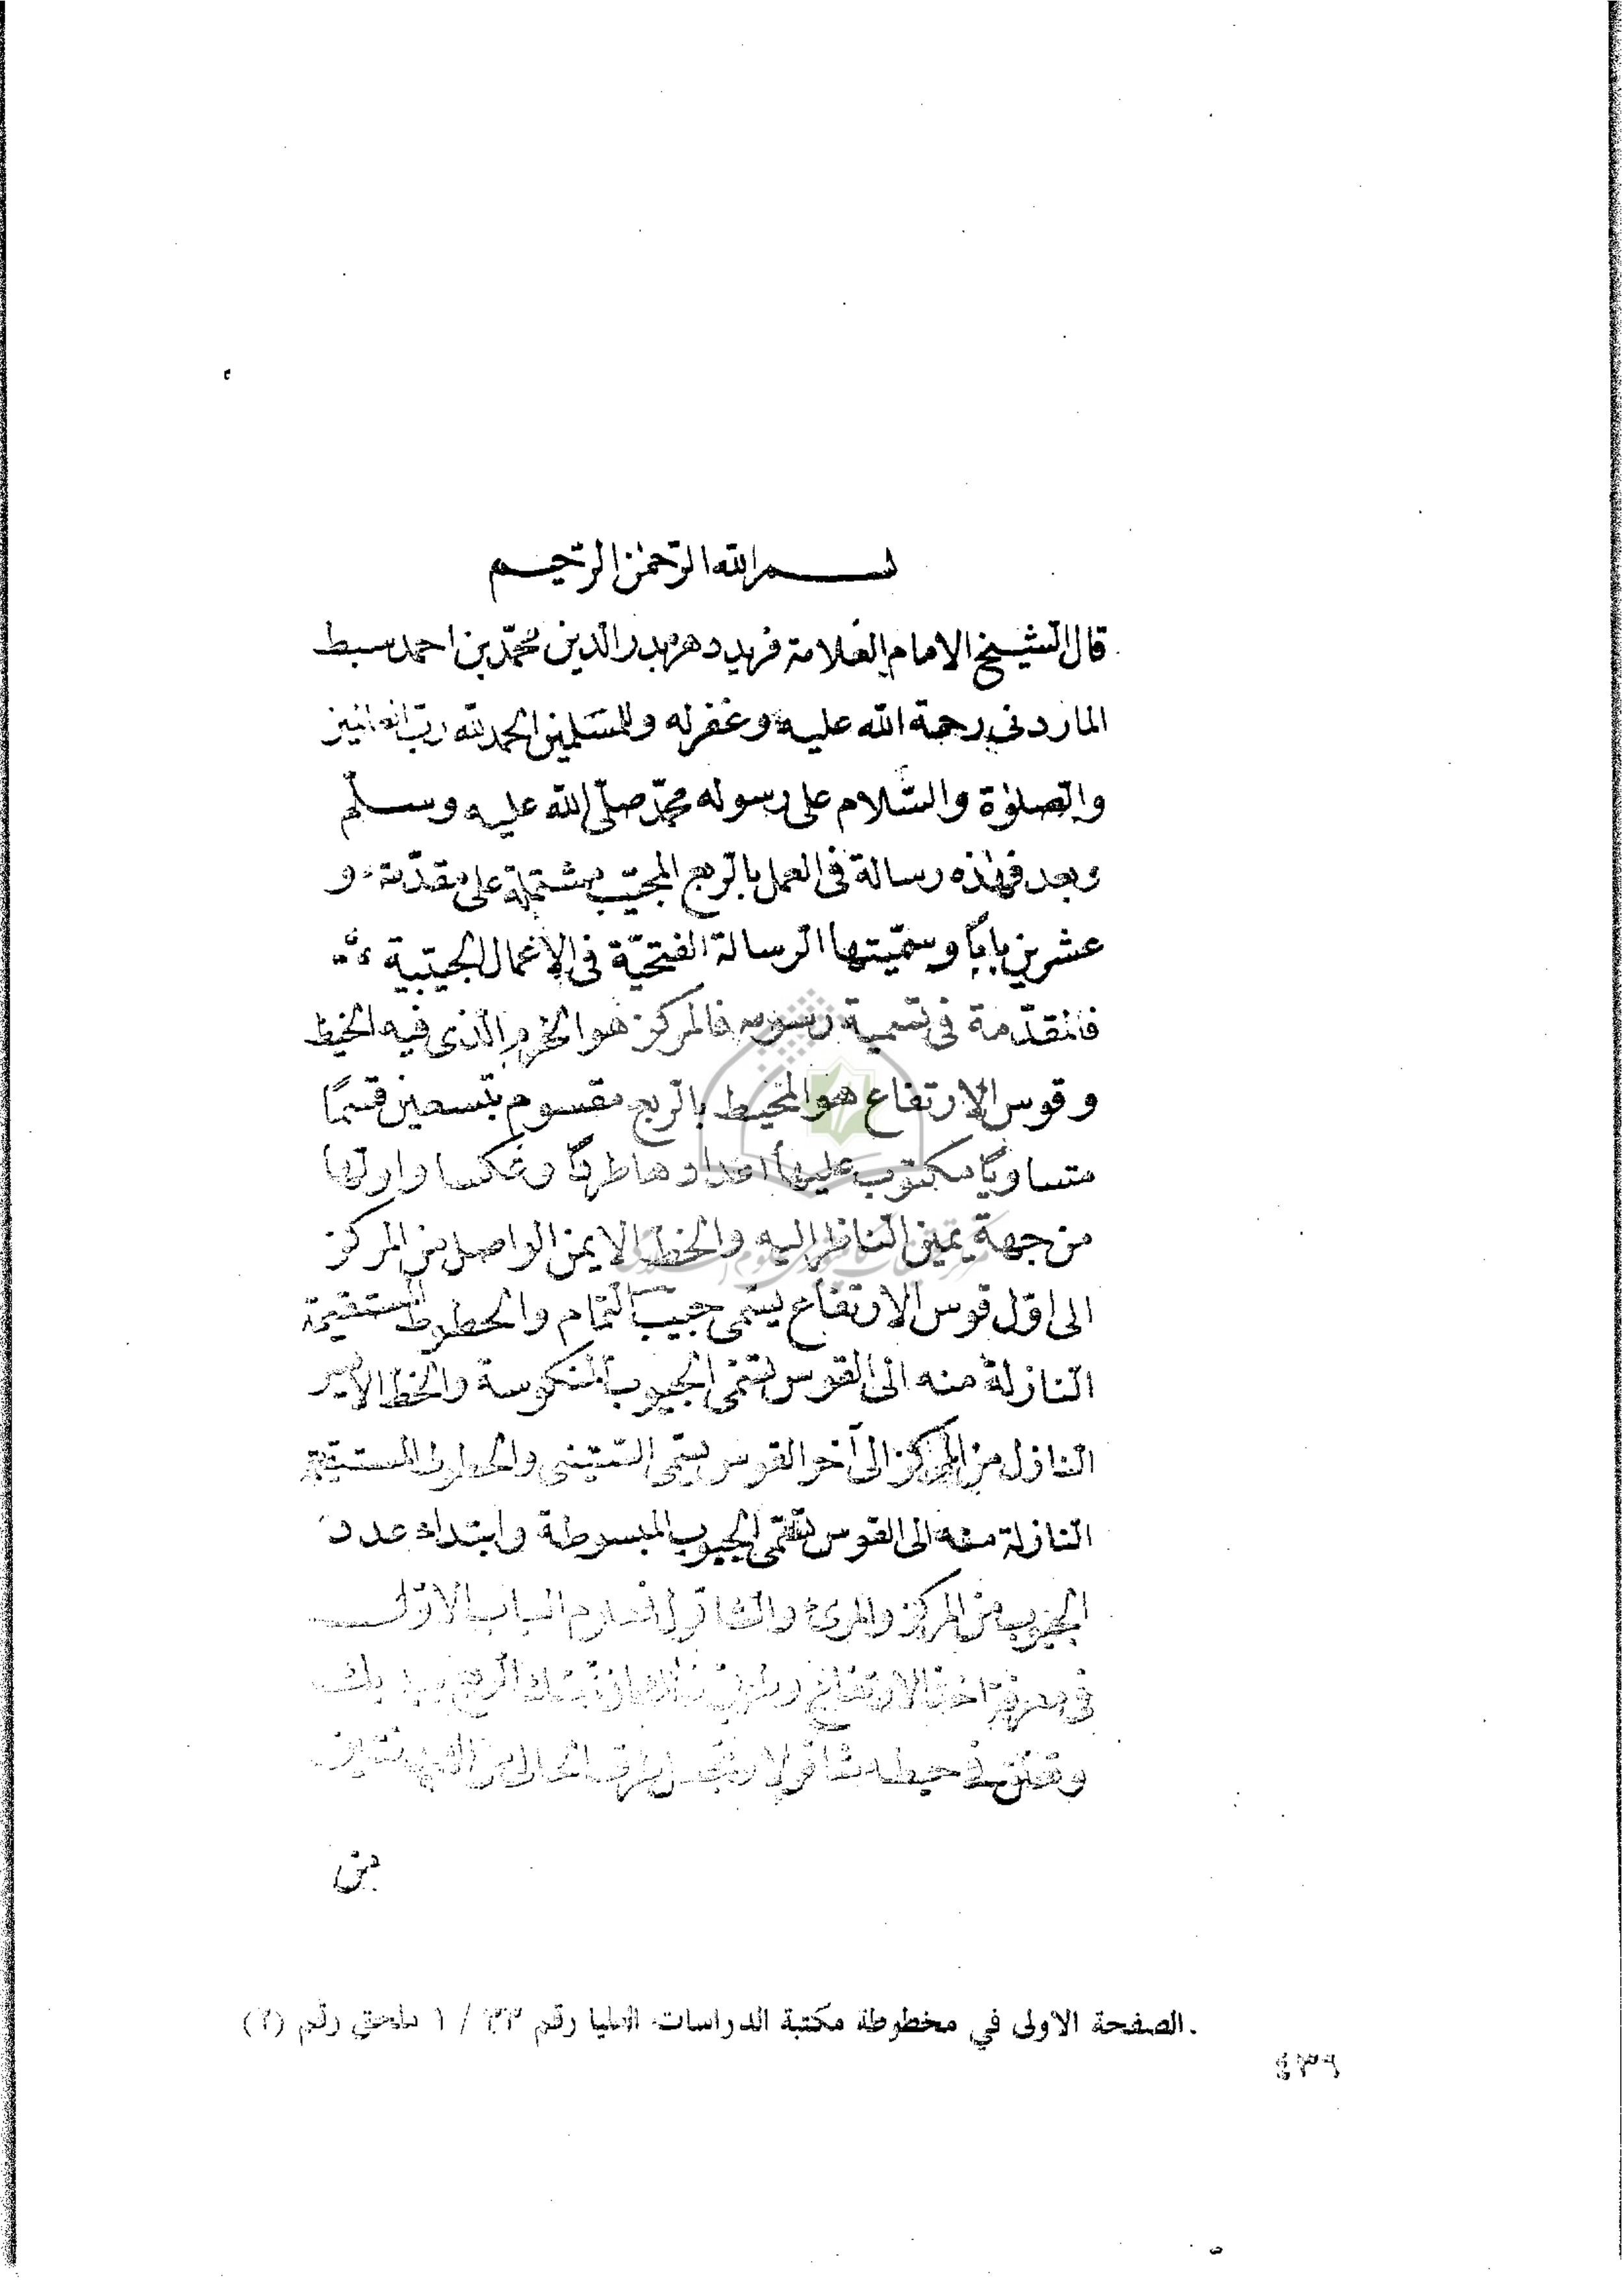 بسم الله الرحمن الرحيم
قال الشيخ الامام العلامة فريد دهره بدر الدين محمد بن احمد سبط
الماردنى رحمة الله عليه وغفر له وللمسلمين الحمد لله رب العالمين
والصلوة والسلام على رسوله محمد صلى الله عليه وسلم
وبعد فهذه رسالة فى العمل بالربع المجيب مشتملة على مقدمة و
عشرين بابًا وسميتها الرسالة الفتحية فى الاعمال الجيبية
فالمقدمة فى تسمية رسومه فالمركز هو الخرم الذى فيه الخيط
وقوس الارتفاع هو المحيط بالربع مقسوم بتسعين قسمًا
متساويًا مكتوب عليها اعدادها طردًا وعكسا واولها
من جهة يمين الناظر اليه والخط الايمن الواصل من المركز
الى اول قوس الارتفاع يسمى جيب التمام والخطوط المستقيمة
النازلة منه الى القوس تسمى الجيوب المنكوسة والخط الايسر
النازل من المركز الى آخر القوس يسمى الستينى والخطوط المستقيمة
النازلة منه الى القوس تسمى الجيوب المبسوطة وابتداء عدد
الجيوب من المركز والمرى والشاقول معلوم الباب الاول
فى معرفة اخذ الارتفاع وطريق ذلك ان تمسك الربع بيديك
وتعلق فى خيطه شاقولا وتجعل الخالى من الهدفتين
من
الصفحة الاولى في مخطوطة مكتبة الدراسات العليا رقم ٣٣ / ١ ملحق رقم (٢)
٤٣٩